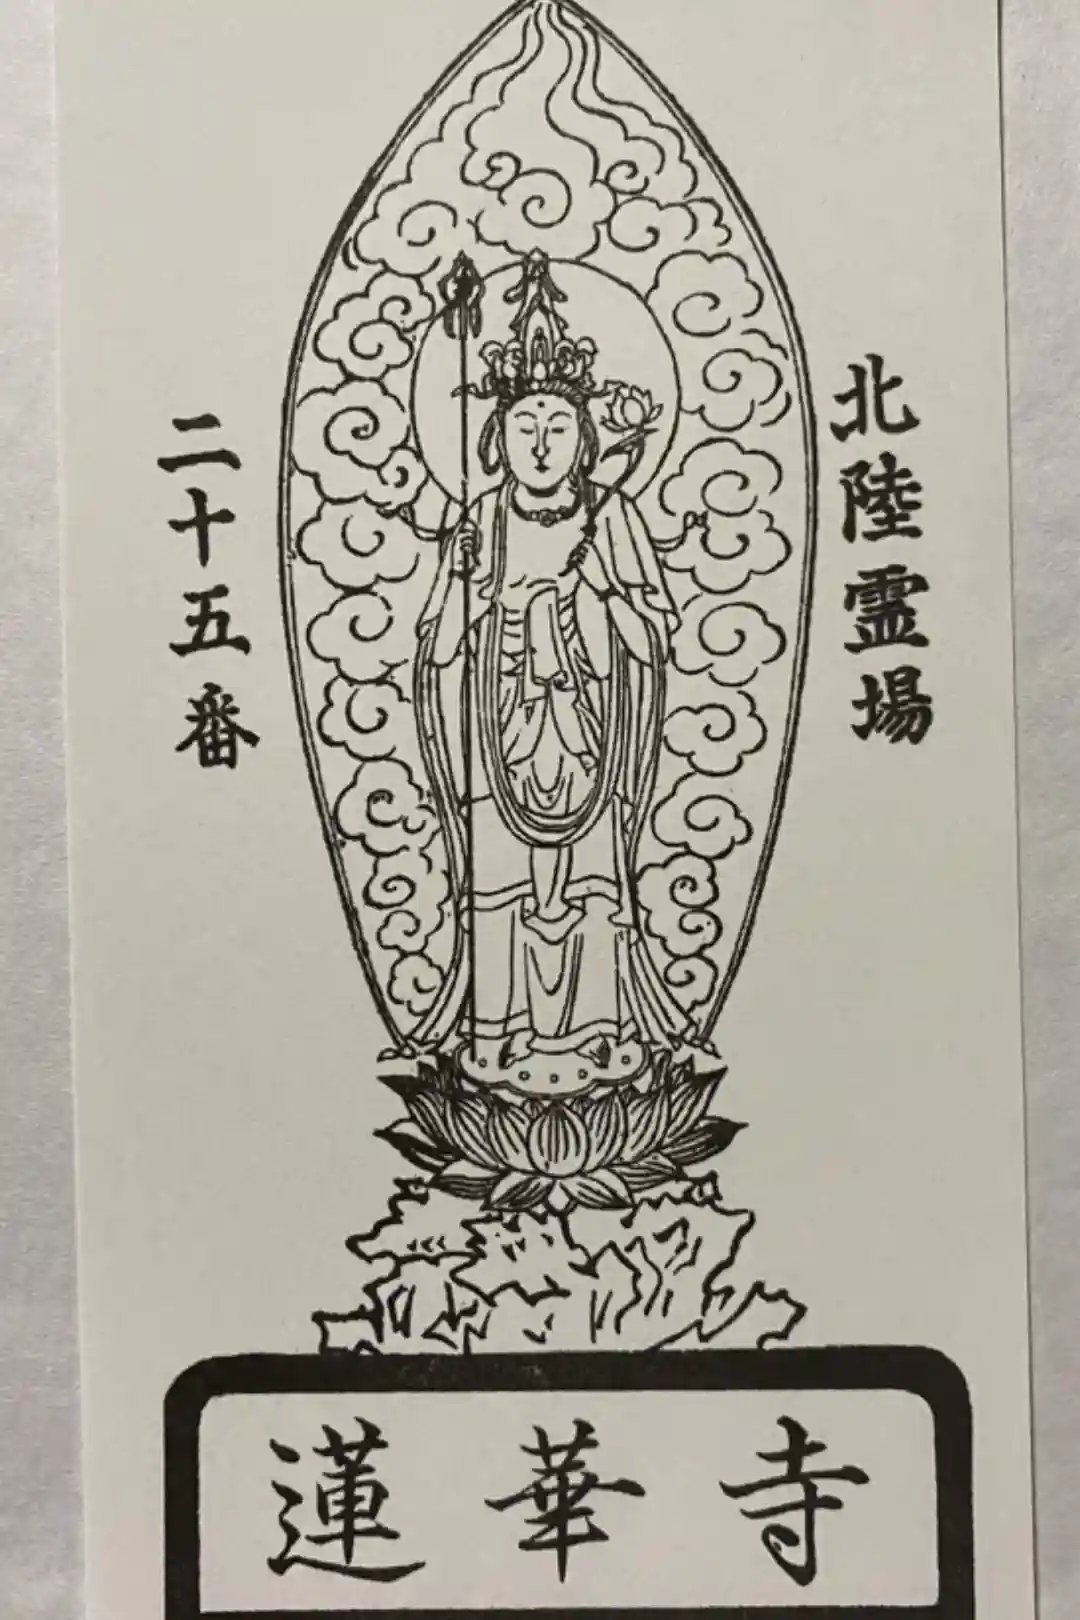 北陸霊場
二十五番
蓮華寺